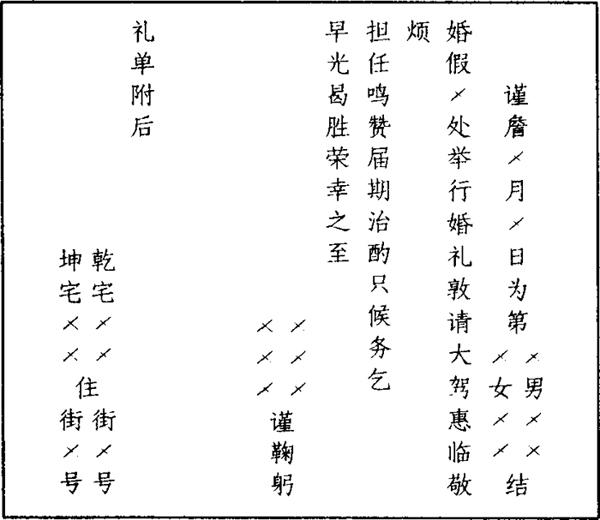 谨詹×月×日为第×男××
×女××结
婚假×处举行婚礼敦请大驾惠临敬
烦
担任鸣赞届期治酌只候务乞
早光曷胜荣幸之至
×××
×××谨鞠躬
礼单附后
乾宅××住街×号
坤宅××街×号